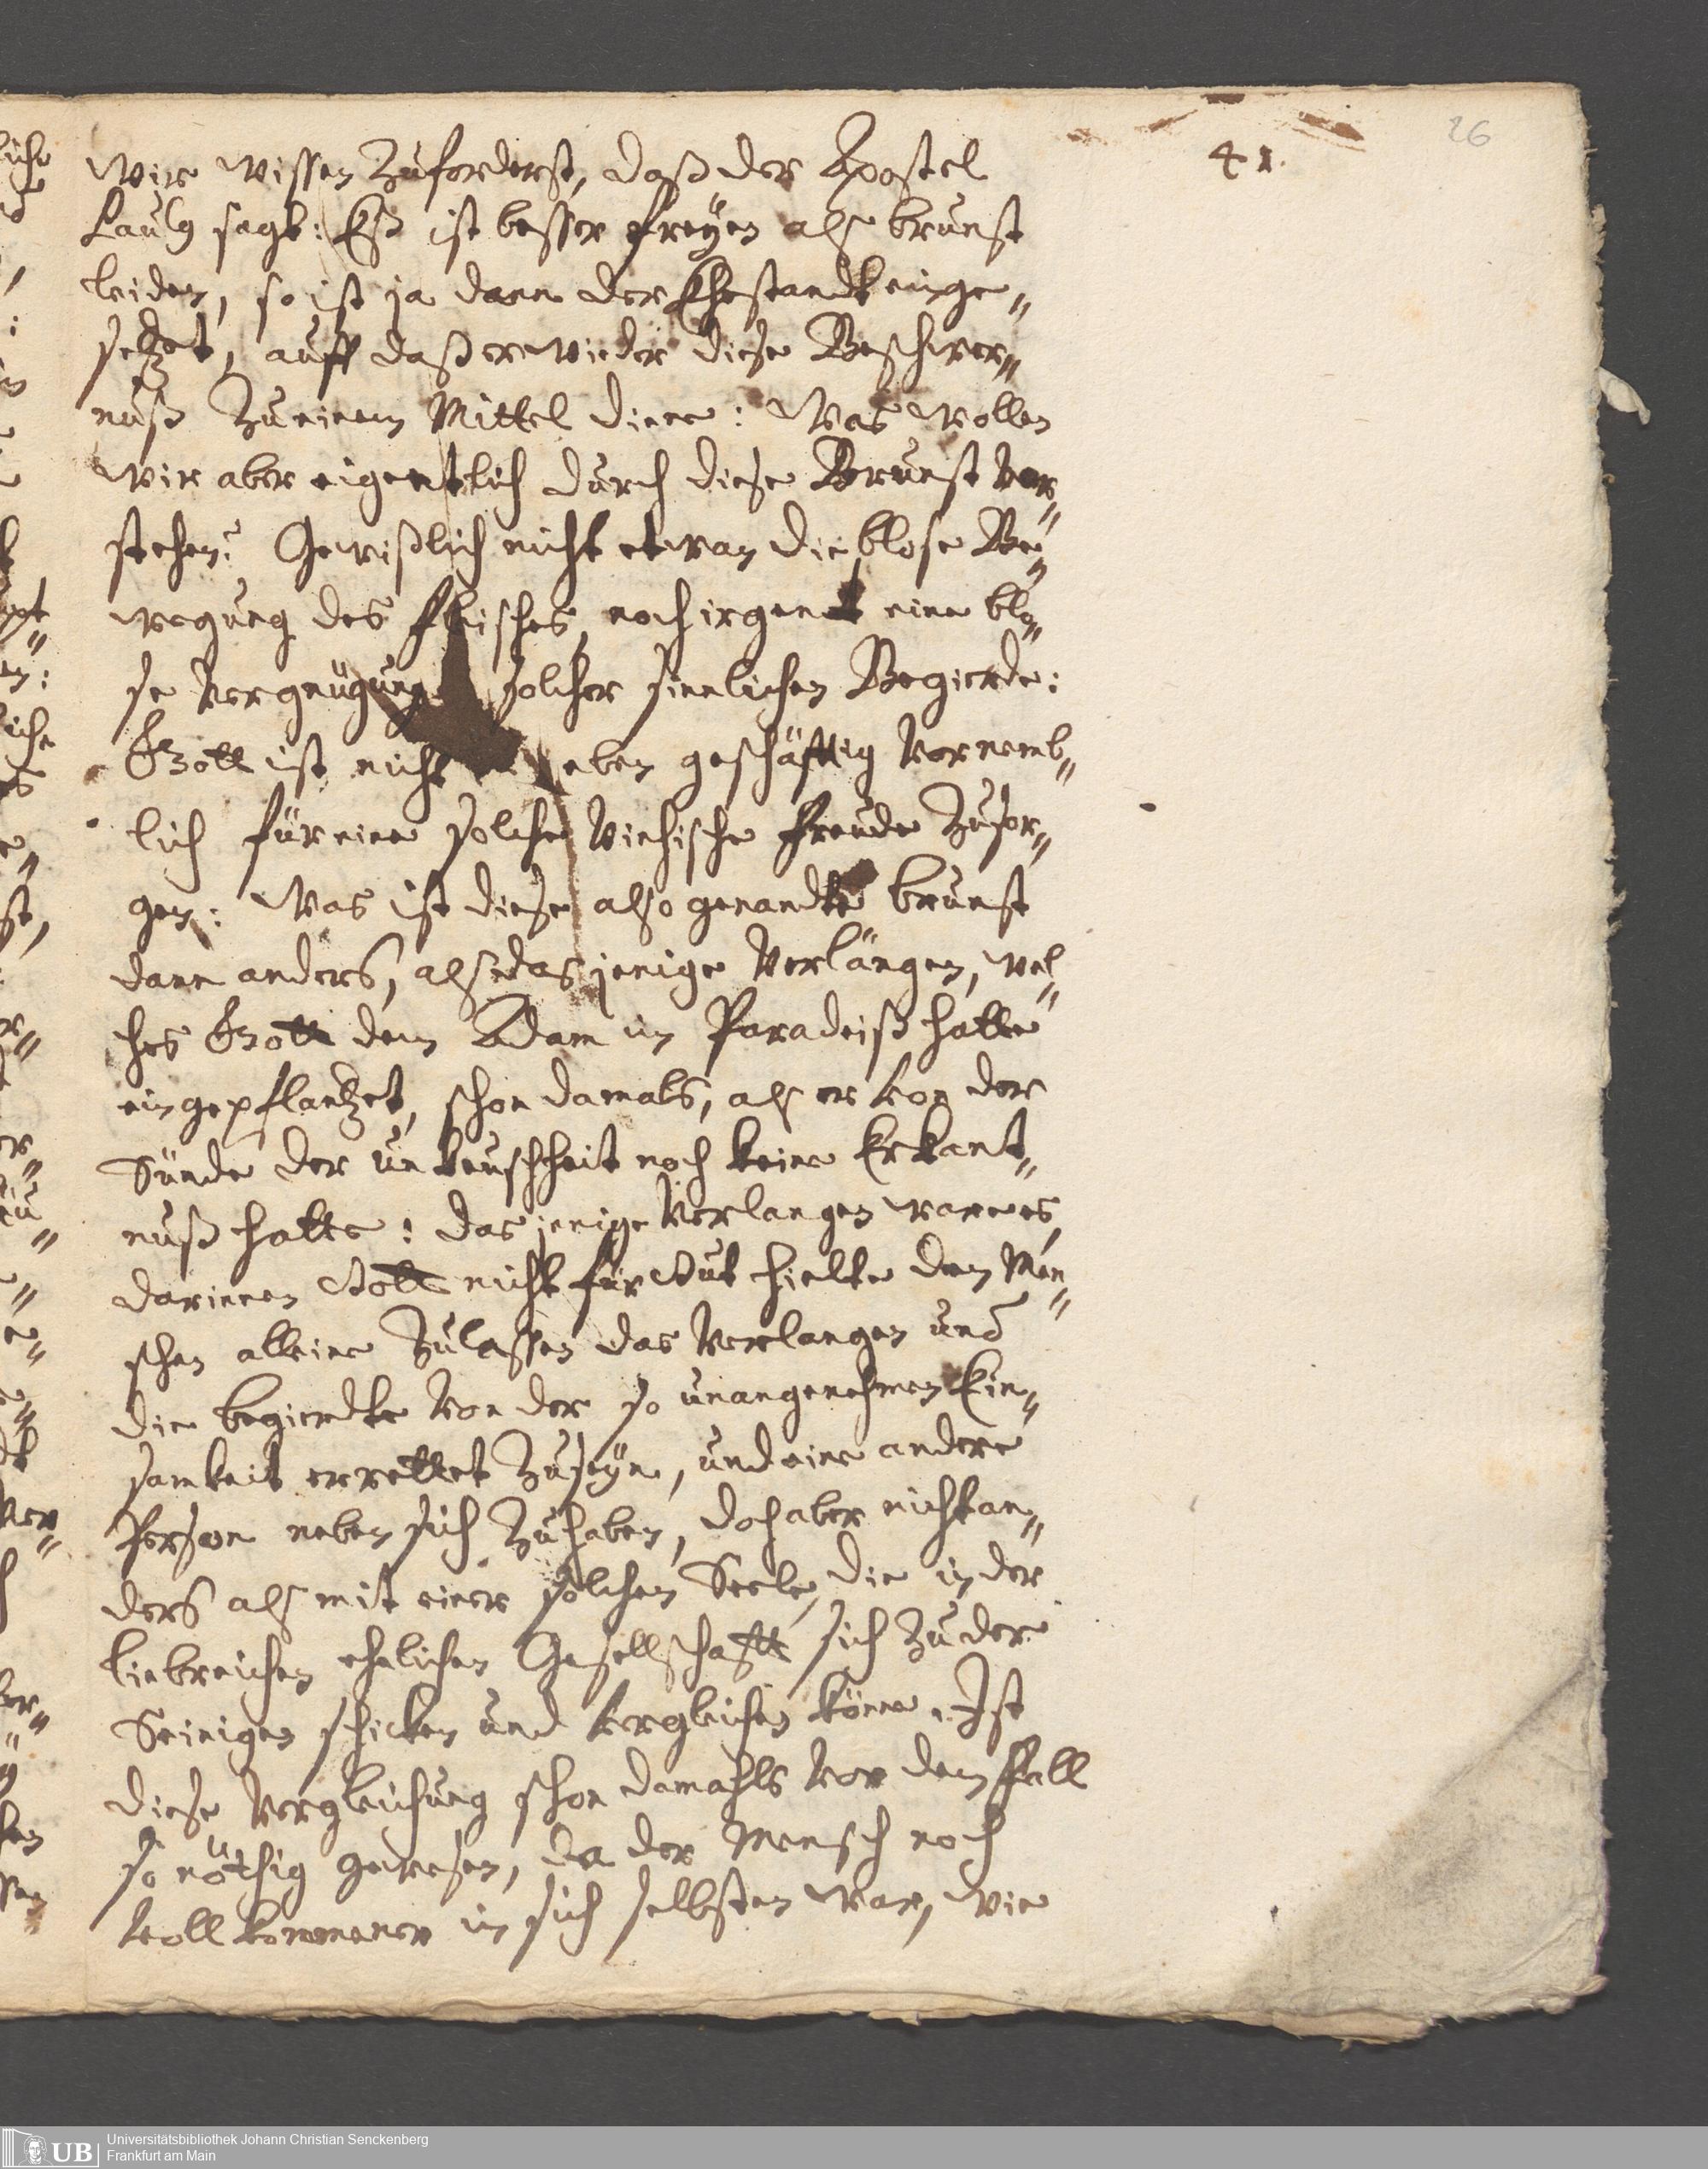 26
41.
Wir wissen zuforderst, daß der Apostel
Paulg sagt: Eß ist besser freyen alß brunst
leiden, so ist ja dann der Ehestandt einge„
setzet, auff daß er wieder diese Beschwer„
nuß zu einem Mittel diene: Was wollen
wir aber eigentlich durch diese Brunst ver„
stehen? Gewißlich nicht etwan die blose Be„
wegung des fleisches, noch irgendt eine blo„
se vergnügung solcher sinnlichen Begierde:
Gott ist nicht eben geschäfftig vornemb„
lich für eine solche viehische freude zusor„
gen: Was ist diese also genandte brunst
dann anders, alß das jenige Verlangen, wel„
ches Gott dem Adam im Paradeiß hatte
eingepflantzet, schon damals, alß er von der
Sünde der unkeuschheit noch keine Erkant„
nuß hatte: das jenige Verlangen ware es,
darinnen Gott nicht für Gut hielte den Men„
schen alleine zulassen das Verlangen und
die begierdte von der so unangenehmen Ein„
samkeit errettet zuseyn, und eine andere
Person neben sich zuhaben, doch aber nicht an„
ders alß mit einer solchen Seele, die in der
liebreichen ehelichen Gesellschafft sich zu der
Seinigen schicken und vergleichen könne. Ist
diese Vergleichung schon damahls vor dem Fall
so nöthig gewesen, da der Mensch noch
vollkommener in sich selbsten war, wie
UB
Universitätsbibliothek Johann Christian Senckenberg
Frankfurt am Main